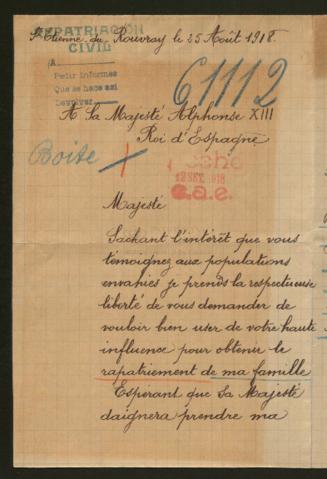 St Etienne du Rouvray le 25 Août 1918.
REPATRIACIÓN
CIVIL
A
Pedir informes
Que se hace así
Devolver
61112
A Sa Majesté Alphonse XIII
Roi d'Espagne
Boite
12 SET. 1918
Majesté
Sachant l'intérêt que vous
témoignez aux populations
envahies je prends la respectueuse
liberté de vous demander de
vouloir bien user de votre haute
influence pour obtenir le
rapatriement de ma famille
Espérant que Sa Majesté
daignera prendre ma